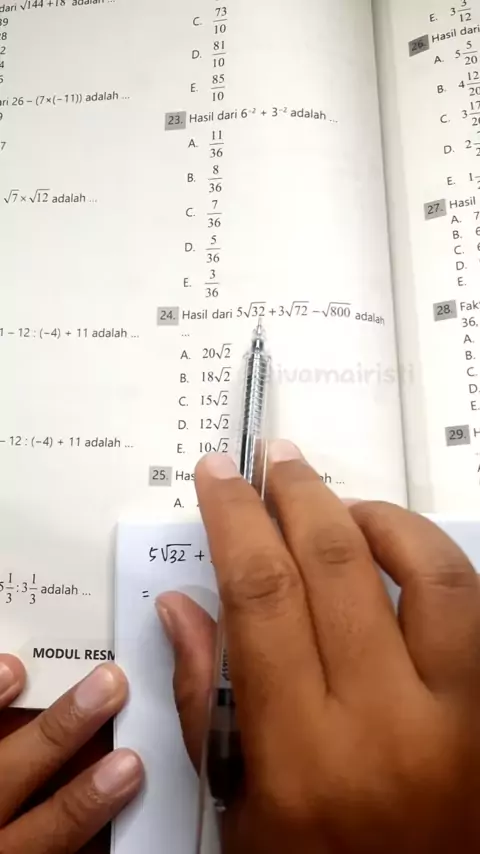 dari √144 + 18 adalah ...
39
28
2
4
5
ari 26 – (7×(–11)) adalah ...
7
√7 × √12 adalah ...
1 – 12 : (–4) + 11 adalah ...
– 12 : (–4) + 11 adalah ...
5 1/3 : 3 1/3 adalah ...
MODUL RESM
C. 73/10
D. 81/10
E. 85/10
23. Hasil dari 6⁻² + 3⁻² adalah ...
A. 11/36
B. 8/36
C. 7/36
D. 5/36
E. 3/36
24. Hasil dari 5√32 + 3√72 – √800 adalah
...
A. 20√2
B. 18√2
C. 15√2
D. 12√2
E. 10√2
25. Has
h ...
A.
5√32 +
=
E. 3 3/12
26. Hasil dari
A. 5 5/20
B. 4 12/20
C. 3 17/20
D. 2
E. 1
27. Hasil
A. 7
B. 6
C. 6
D.
E.
28. Fak
36,
A.
B.
C.
D.
E.
29. H